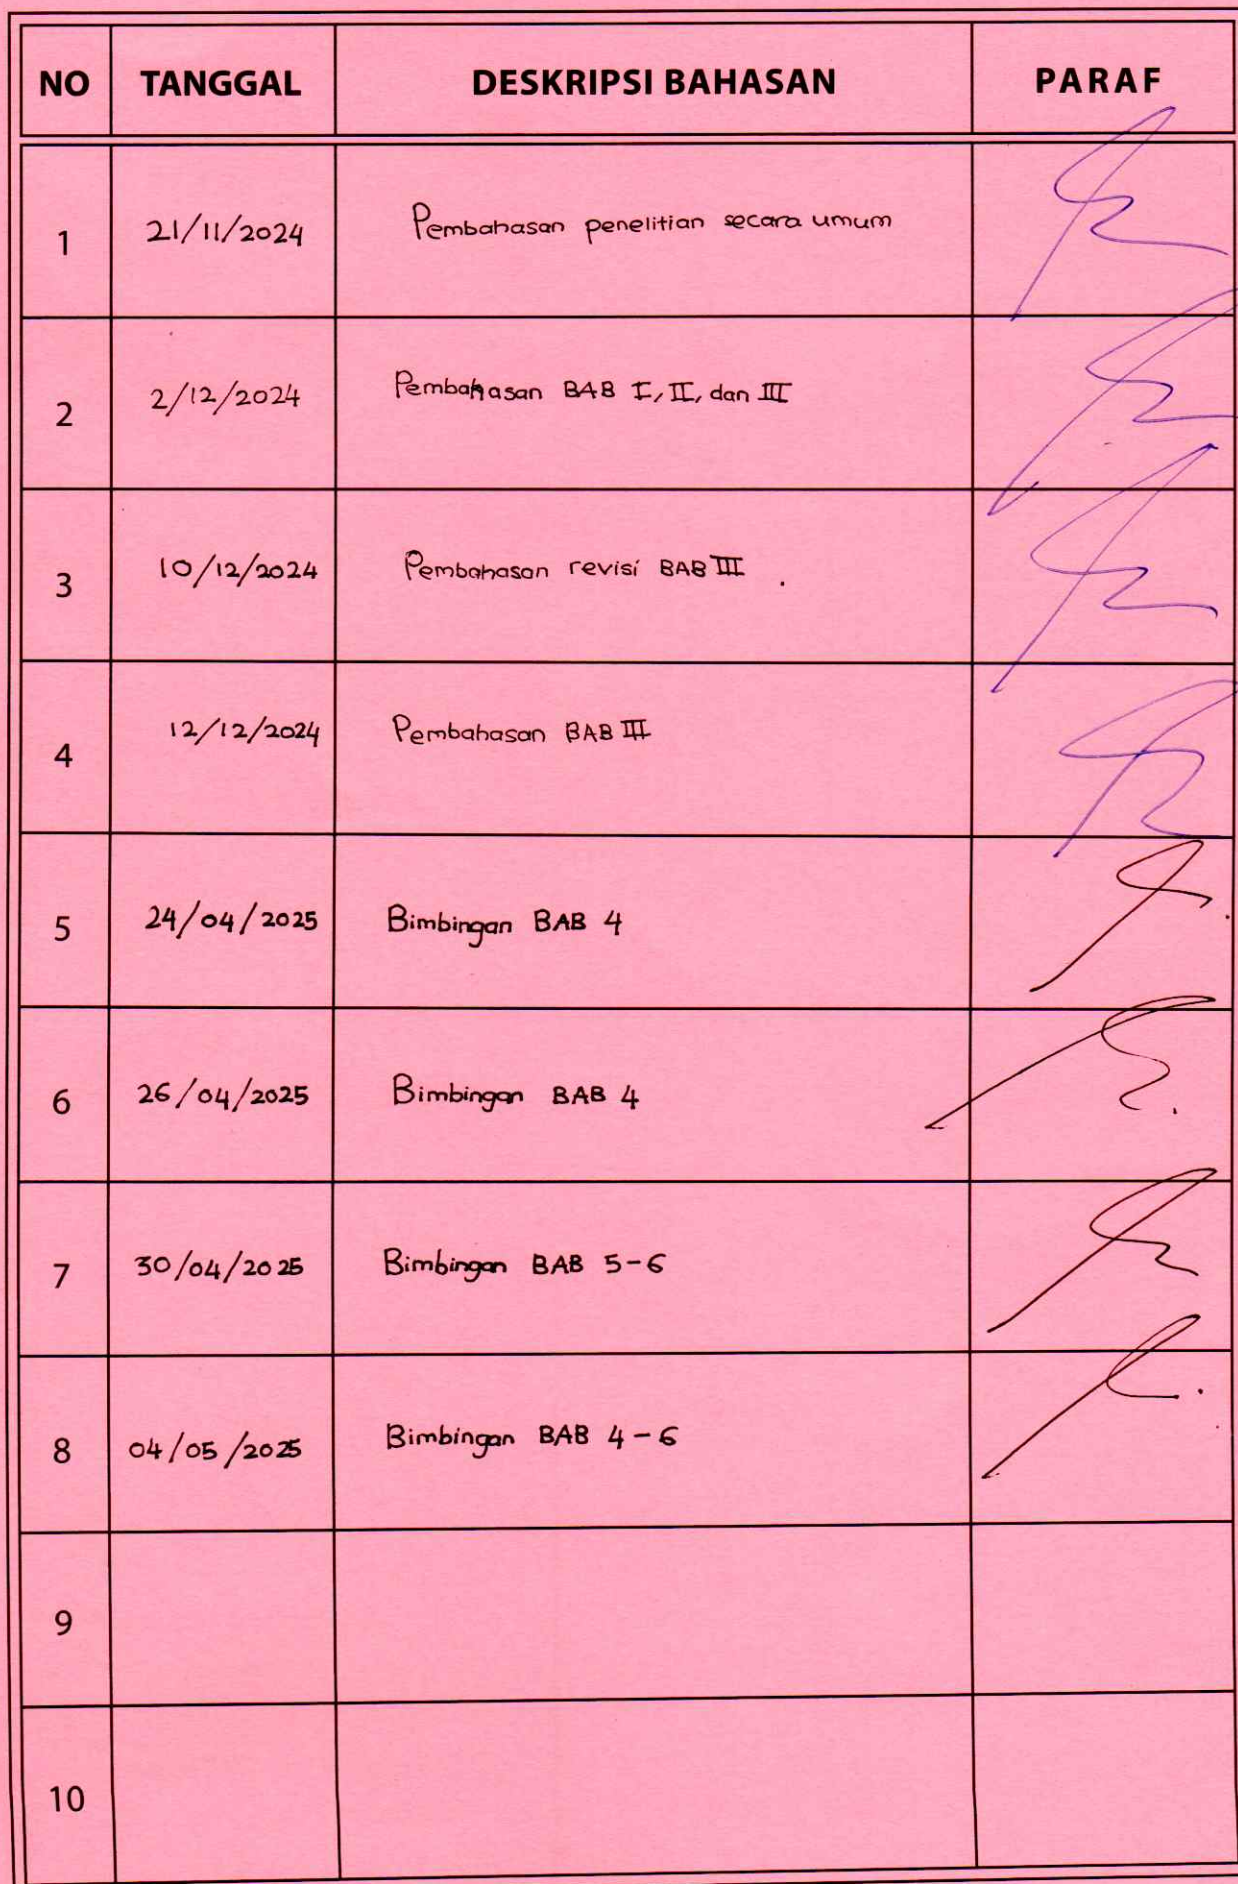 NO TANGGAL DESKRIPSI BAHASAN PARAF
1 21/11/2024 Pembahasan penelitian secara umum
2 2/12/2024 Pembahasan BAB I, II, dan III
3 10/12/2024 Pembahasan revisi BAB III .
4 12/12/2024 Pembahasan BAB III
5 24/04/2025 Bimbingan BAB 4
6 26/04/2025 Bimbingan BAB 4
7 30/04/2025 Bimbingan BAB 5-6
8 04/05/2025 Bimbingan BAB 4-6
9
10